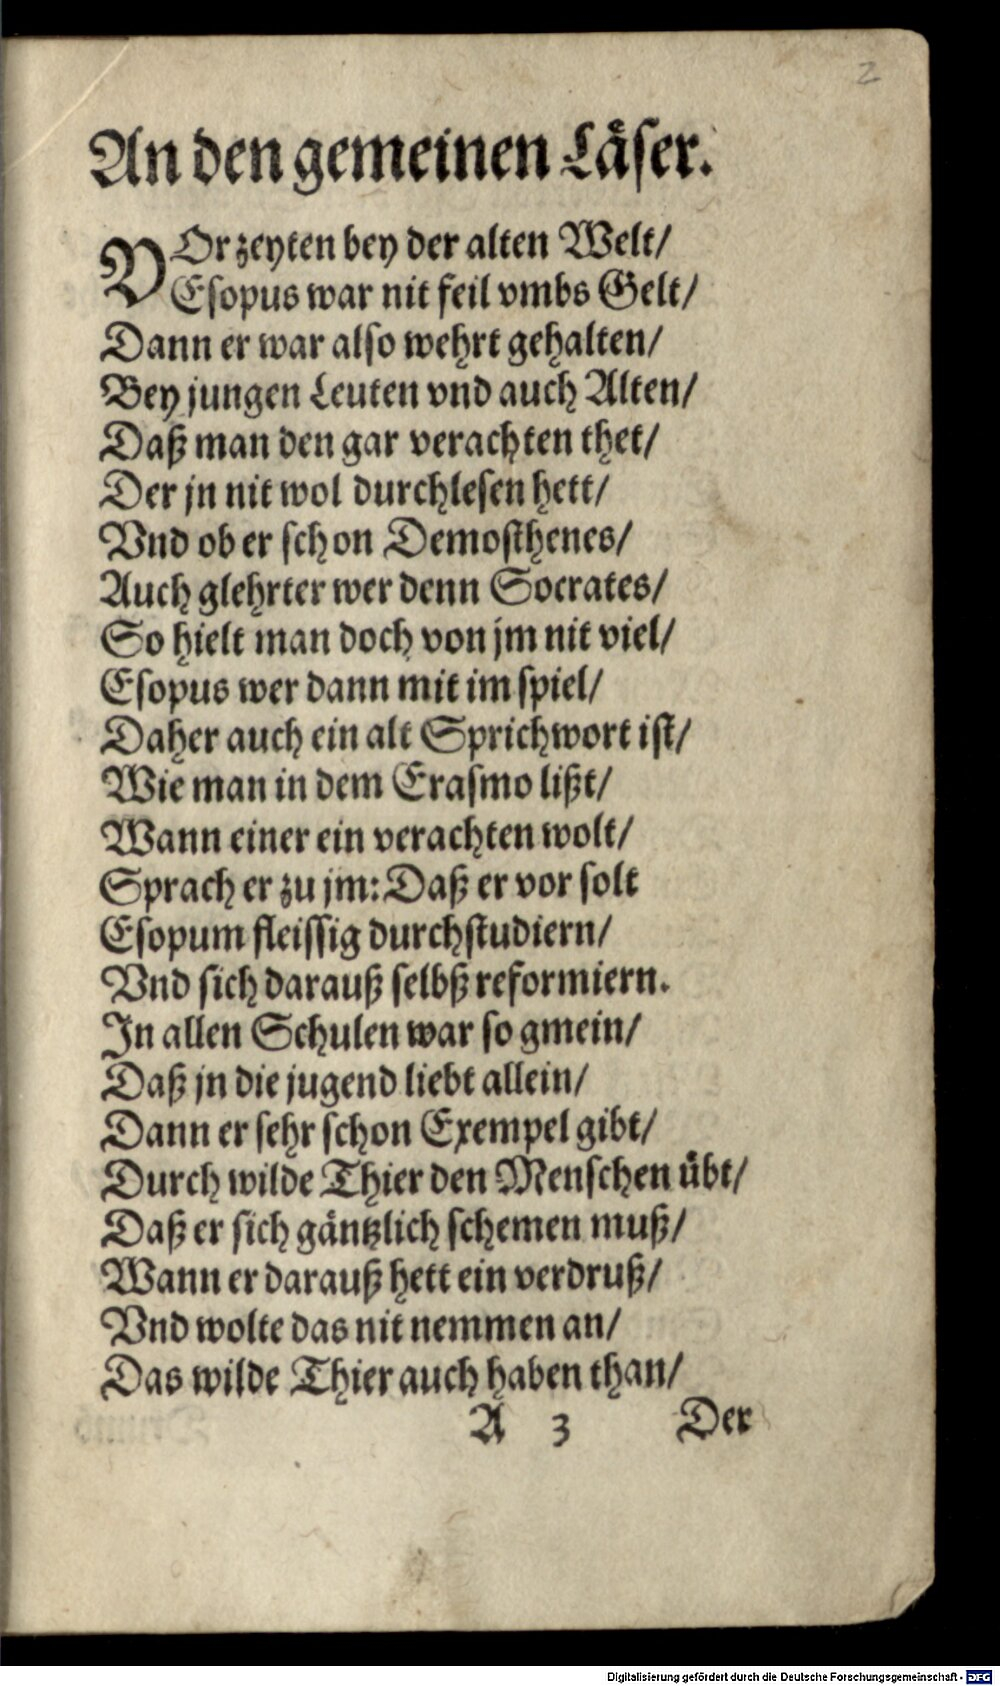 2
An den gemeinen Läser.
VOr zeyten bey der alten Welt/
Esopus war nit feil vmbs Gelt/
Dann er war also wehrt gehalten/
Bey jungen Leuten vnd auch Alten/
Daß man den gar verachten thet/
Der jn nit wol durchlesen hett/
Vnd ob er schon Demosthenes/
Auch glehrter wer denn Socrates/
So hielt man doch von jm nit viel/
Esopus wer dann mit im spiel/
Daher auch ein alt Sprichwort ist/
Wie man in dem Erasmo lißt/
Wann einer ein verachten wolt/
Sprach er zu jm: Daß er vor solt
Esopum fleissig durchstudiern/
Vnd sich darauß selbß reformiern.
In allen Schulen war so gmein/
Daß jn die jugend liebt allein/
Dann er sehr schon Exempel gibt/
Durch wilde Thier den Menschen übt/
Daß er sich gäntzlich schemen muß/
Wann er darauß hett ein verdruß/
Vnd wolte das nit nemmen an/
Das wilde Thier auch haben than/
A 3 Der
Digitalisierung gefördert durch die Deutsche Forschungsgemeinschaft - DFG